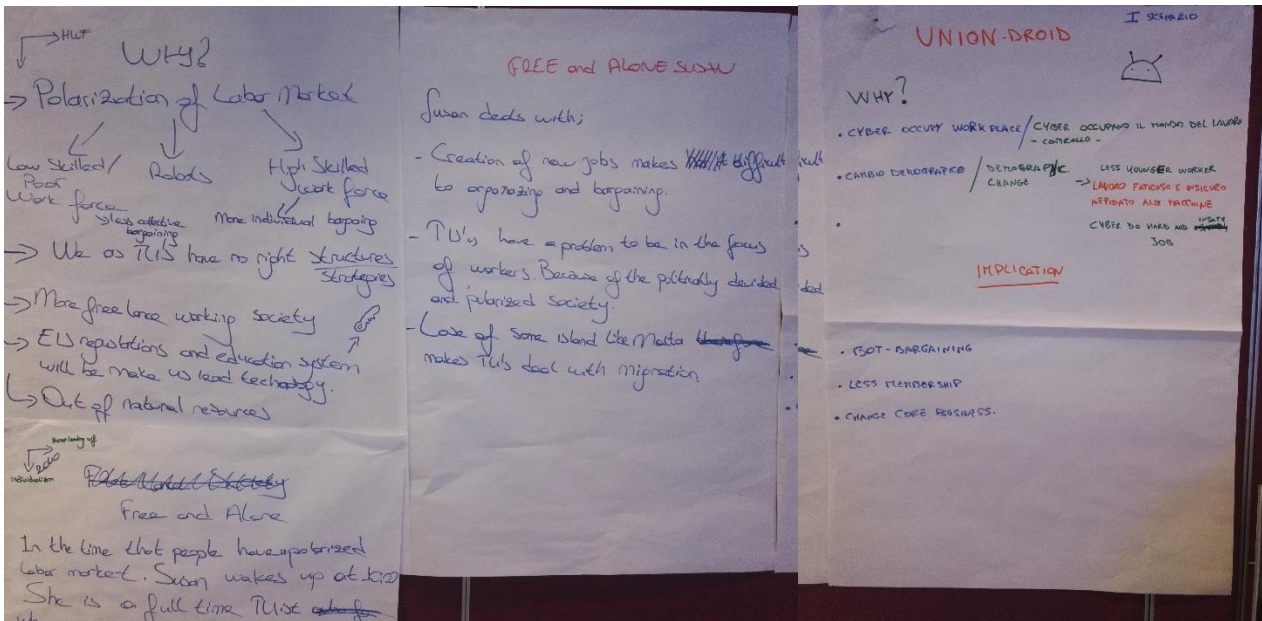 HWF
WHY?
→ Polarization of Labor Market
Low Skilled/
Poor
Work force
Robots
High Skilled
Work force
→ less collective
bargaining
More individual bargaing
→ We as TU'S have no right structures
strategies
→ More free lance working society
→ EU regulations and education system
will be make us lead technology.
→ Out of natural resources
individualism
Free and Alone
In the time that people have a polorized
labor market. Susan wakes up at
She is a full time TUist
FREE and ALONE SUSAN
Susan deals with;
- Creation of new jobs makes it difficult
to orponozing and bargaining.
- TU's have a problem to be in the focus
of workers. Because of the politically devided
and polarized society.
- Lose of some island like Malta
makes TU's deal with migration
I SCENARIO
UNION-DROID
WHY?
• CYBER OCCUPY WORKPLACE / CYBER OCCUPANO IL MONDO DEL LAVORO
- CONTROLLO -
• CAMBIO DEMOGRAFICO / DEMOGRAPHIC
CHANGE
LESS YOUNGER WORKER
→ LAVORO FATICOSO E INSICURO
AFFIDATO ALLE MACCHINE
CYBER DO HARD AND UNSAFE
JOB
IMPLICATION
• BOT-BARGAINING
• LESS MEMBERSHIP
• CHANGE CORE BUSINESS.